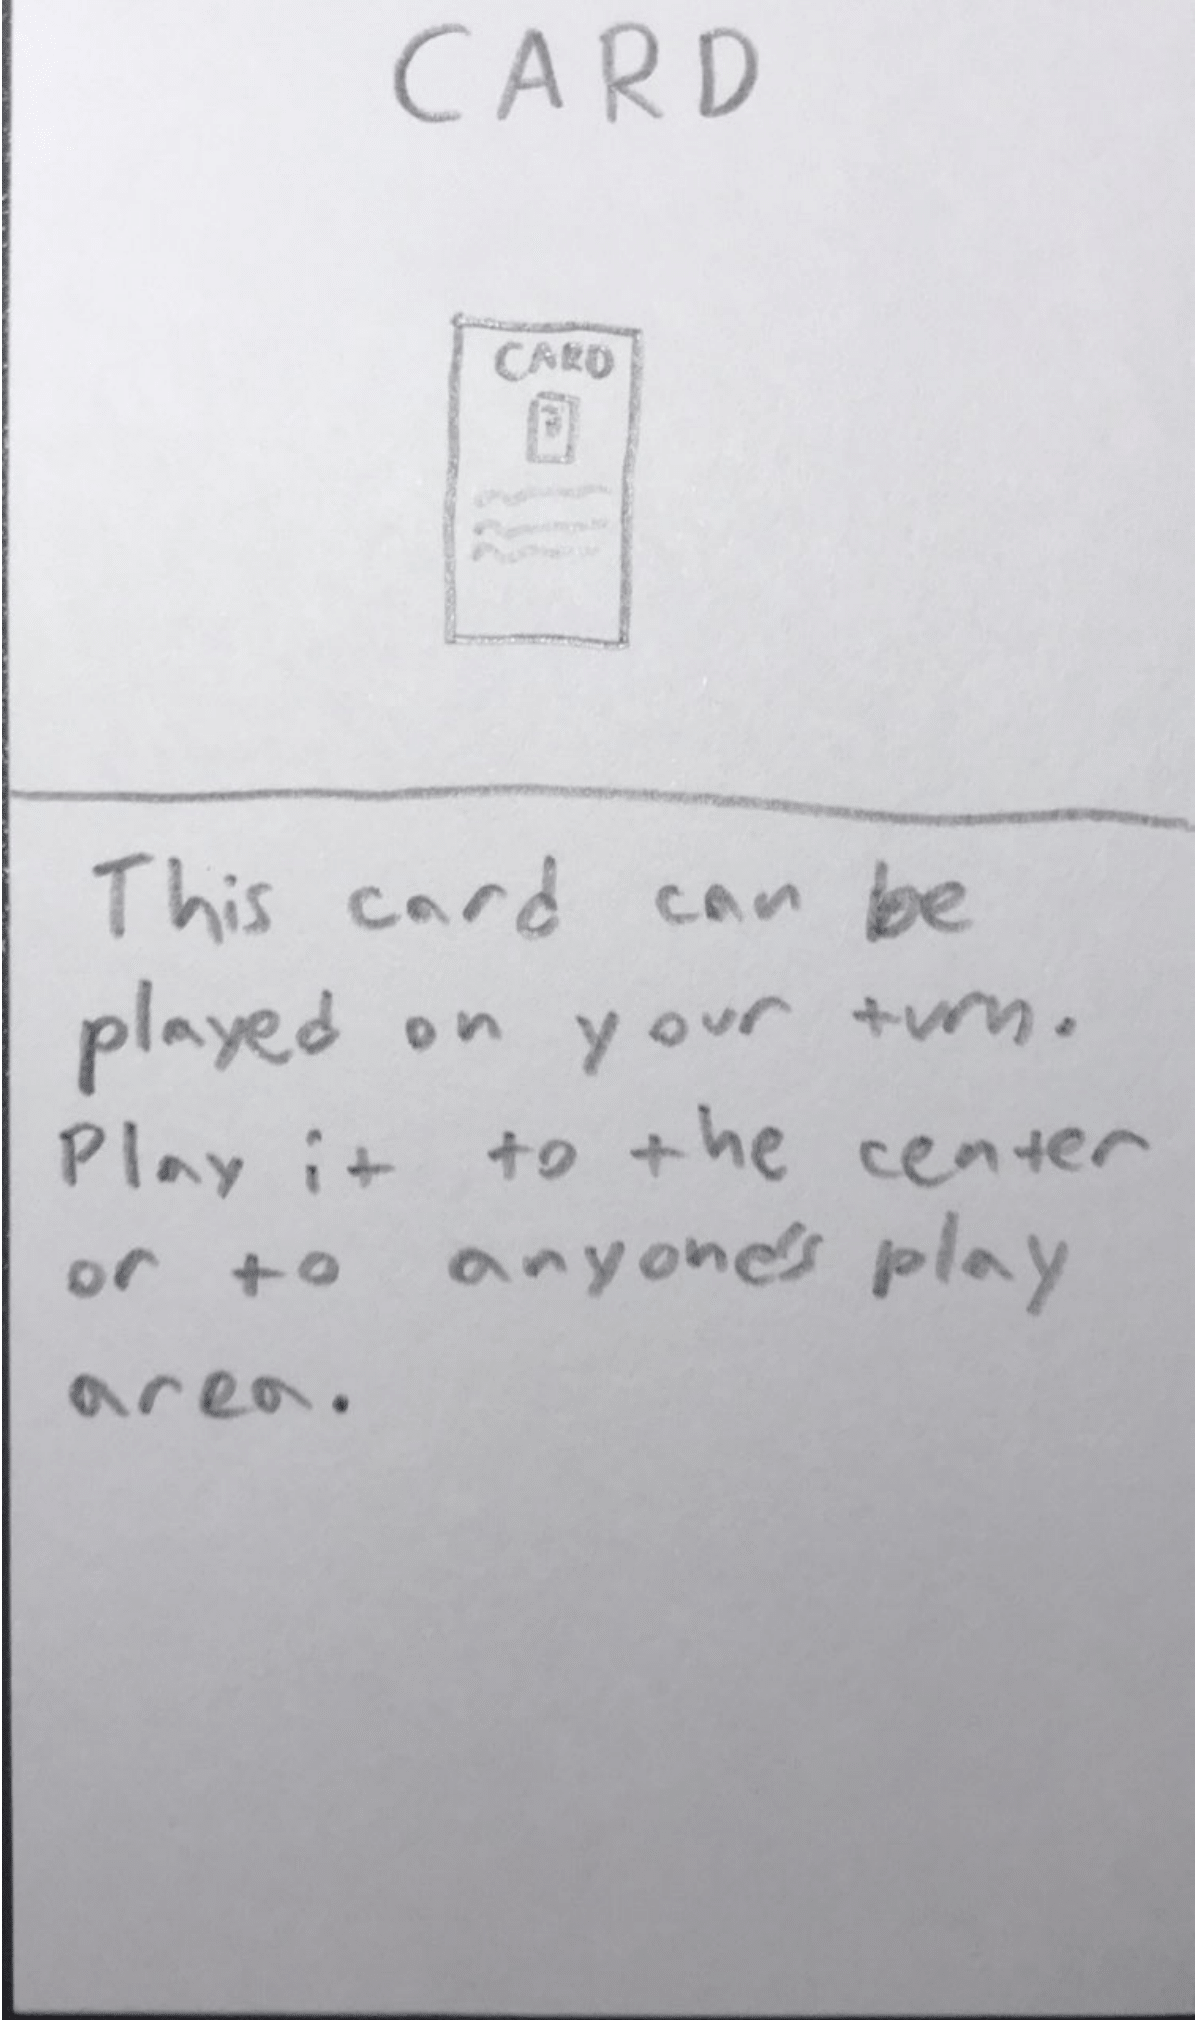 CARD
CARD
This card can be
played on your turn.
Play it to the center
or to anyone's play
area.